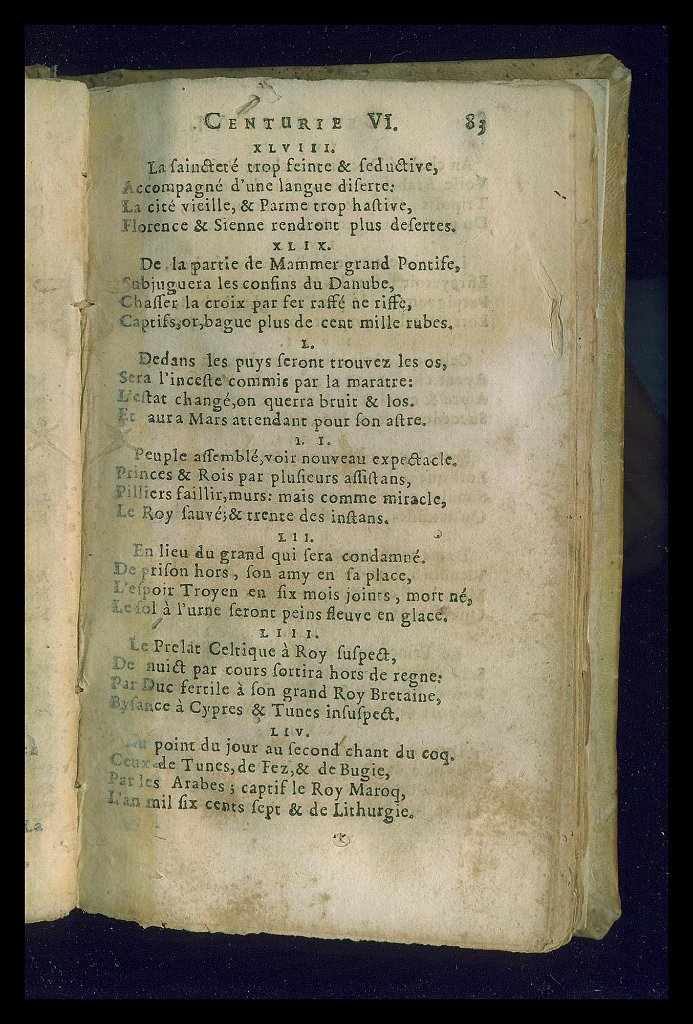 CENTURIE VI. 83
XLVIII.
La sainĉteté trop feinte & seductive,
Accompagné d'une langue diserte:
La cité vieille, & Parme trop hastive,
Florence & Sienne rendront plus desertes.
XLIX.
De la partie de Mammer grand Pontife,
Subjuguera les confins du Danube,
Chasser la croix par fer raffé ne riffe,
Captifs,or,bague plus de cent mille rubes.
L.
Dedans les puys seront trouvez les os,
Sera l'inceste commis par la maratre:
L'estat changé,on querra bruit & los.
Et aura Mars attendant pour son astre.
LI.
Peuple assemblé,voir nouveau expectacle.
Princes & Rois par plusieurs assistans,
Pilliers faillir,murs: mais comme miracle,
Le Roy sauvé;& trente des instans.
LII.
En lieu du grand qui sera condamné.
De prison hors, son amy en sa place,
L'espoir Troyen en six mois joints, mort né,
Le sol à l'urne seront peins fleuve en glace.
LIII.
Le Prelat Celtique à Roy suspect,
De nuict par cours sortira hors de regne:
Par Duc fertile à son grand Roy Bretaine,
Bysance à Cypres & Tunes insuspect.
LIV.
Au point du jour au second chant du coq.
Ceux de Tunes,de Fez,& de Bugie,
Par les Arabes; captif le Roy Maroq,
L'an mil six cents sept & de Lithurgie.
La